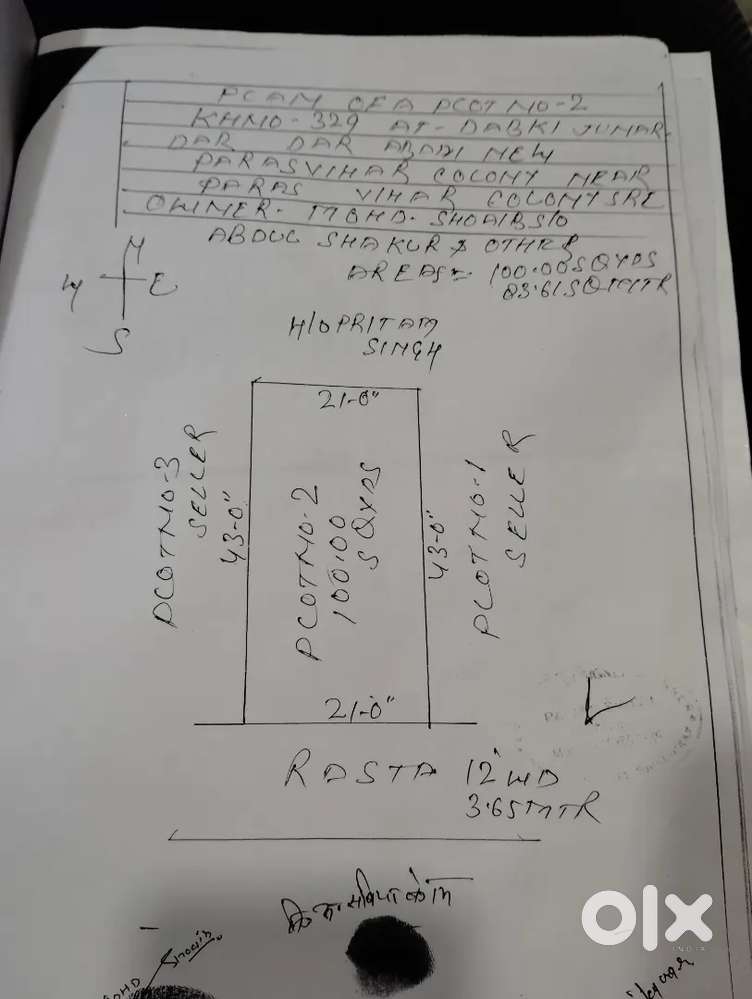 PLAN OF A PLOT NO-2
KHNO-329 AT-DABKI JUNAR
DAR DAR ABADI NEW
PARASVIHAR COLONY NEAR
PARAS VIHAR COLONY SRE
OWNER- MOHD. SHOAIB S/O
ABDUL SHAKUR & OTHER
AREAS= 100.00 SQYDS
83.61 SQMTR
N
W E
S
H/O PRITAM
SINGH
21-0"
PLOT NO-3
SELLER
43-0"
PLOT NO-2
100.00
SQYDS
43-0"
PLOT NO-1
SELLER
21-0"
RASTA 12' WD
3.65 MTR
MOHD Shoaib
olx
INDIA